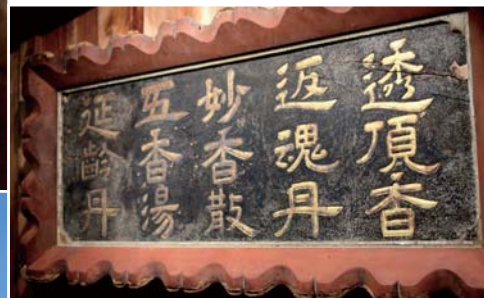 透頂香
返魂丹
妙香散
五香湯
延齡丹